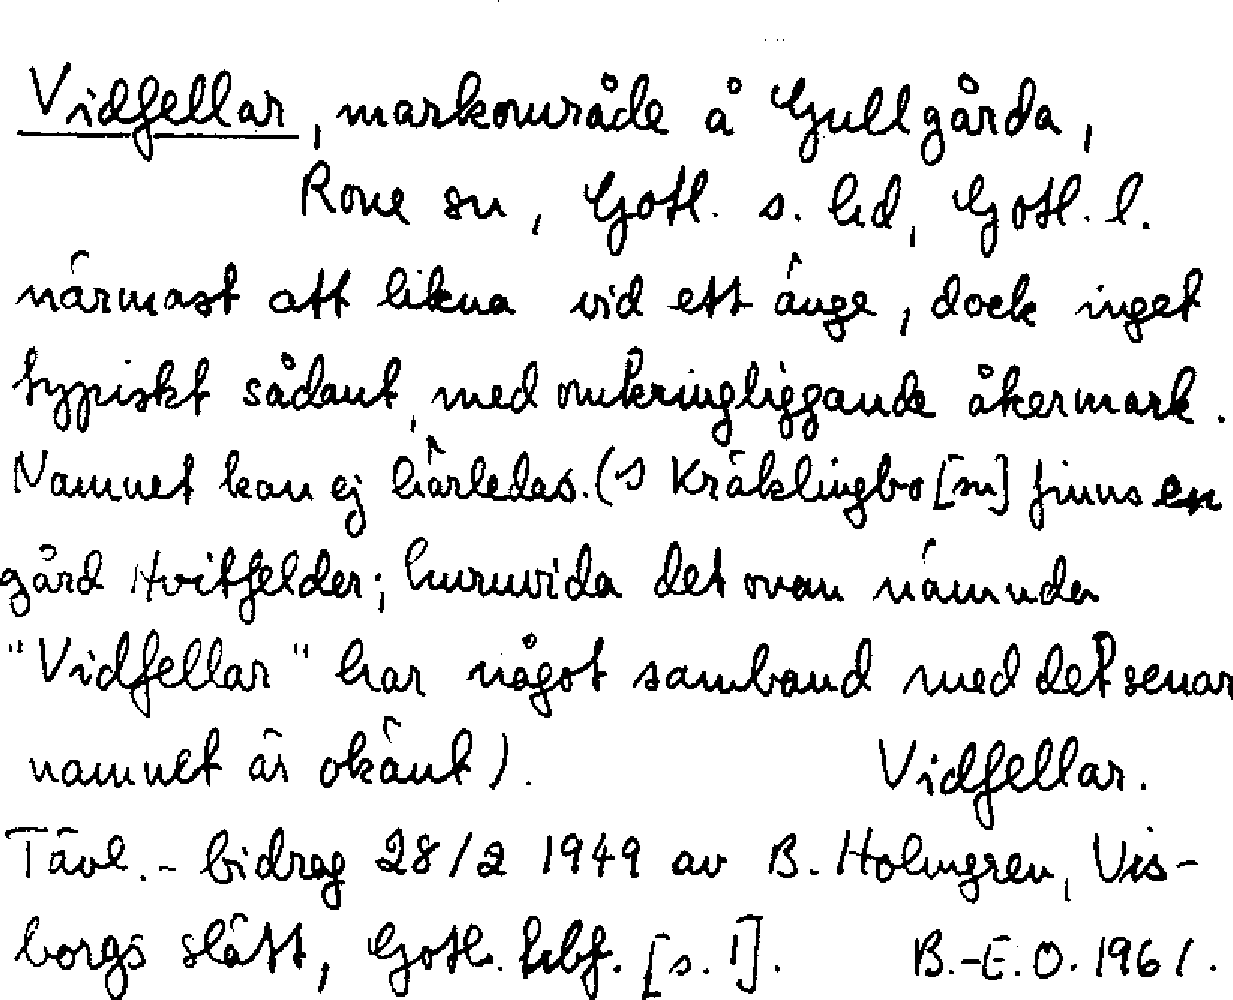 Vidfellar, markområde å Gullgårda,
Rone sn, Gotl. s. hd, Gotl. l.
närmast att likna vid ett änge, dock inget
typiskt sådant, med omkringliggande åkermark.
Namnet kan ej härledas. (I Kräklingbo [sn] finns en
gård Hvitfelder; huruvida det ovan nämnda
"Vidfellar" har något samband med det senar
namnet är okänt).
Vidfellar.
Tävl.-bidrag 28/2 1949 av B. Holmgren, Vis-
borgs slätt, Gotl. hbf. [s. 1].
B.-E.O. 1961.